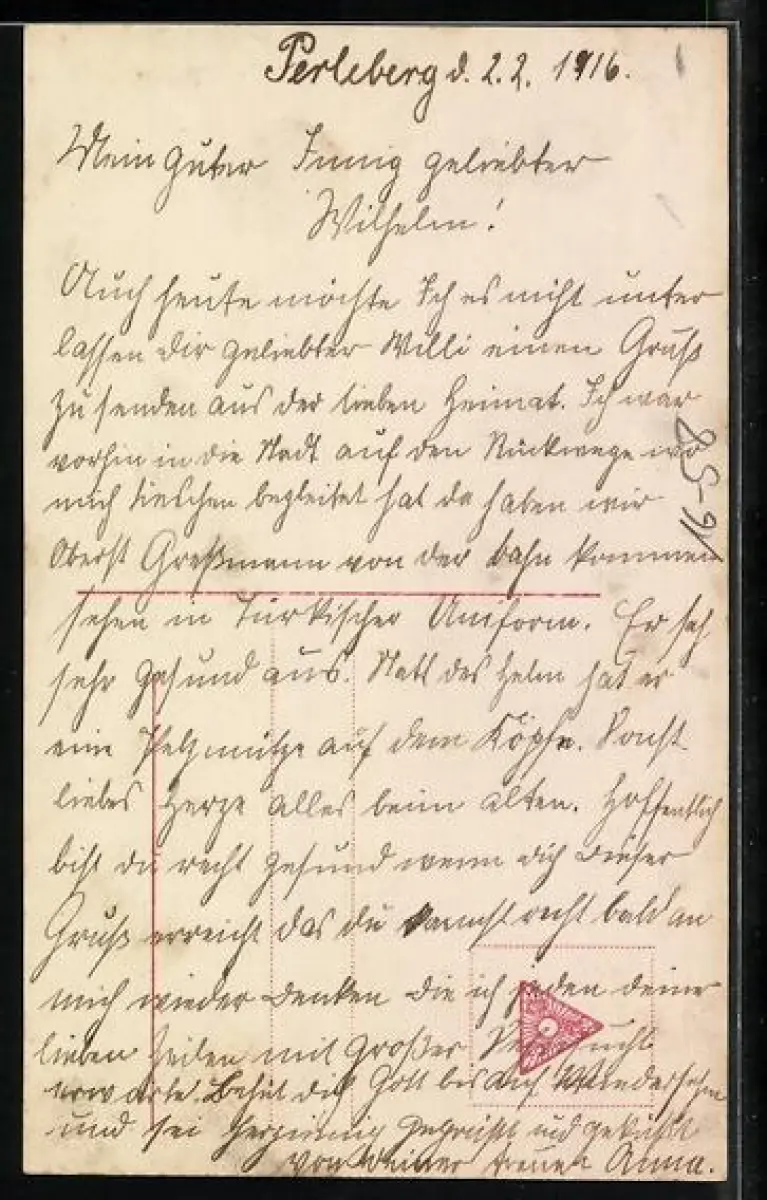 Perleberg d. 2.2. 1916.
Mein guter Innig geliebter
Wilhelm!
Auch heute möchte Ich es nicht unter
lassen dir geliebter Willi einen Gruß
zu senden aus der lieben Heimat. Ich war
vorhin in die Stadt auf den Rückwege wo
mich Lieschen begleitet hat da haben wir
Oberst Greßmann von der Bahn kommen
sehen in Türkischer Uniform. Er sah
sehr gesund aus. Statt des Helm hat er
eine Pelzmütze auf dem Köpfe. Sonst
liebes Herze alles beim alten. Hoffentlich
bist du recht gesund wenn dich dieser
Gruß erreicht das du kannst recht bald an
mich wieder denken die ich jeden deiner
lieben Zeilen mit Großer Sehnsucht
erwarte. Behüt dich Gott bis auf Wiedersehn
und sei herzinnig gegrüßt und geküßt
von deiner treuen Anna.
16-58